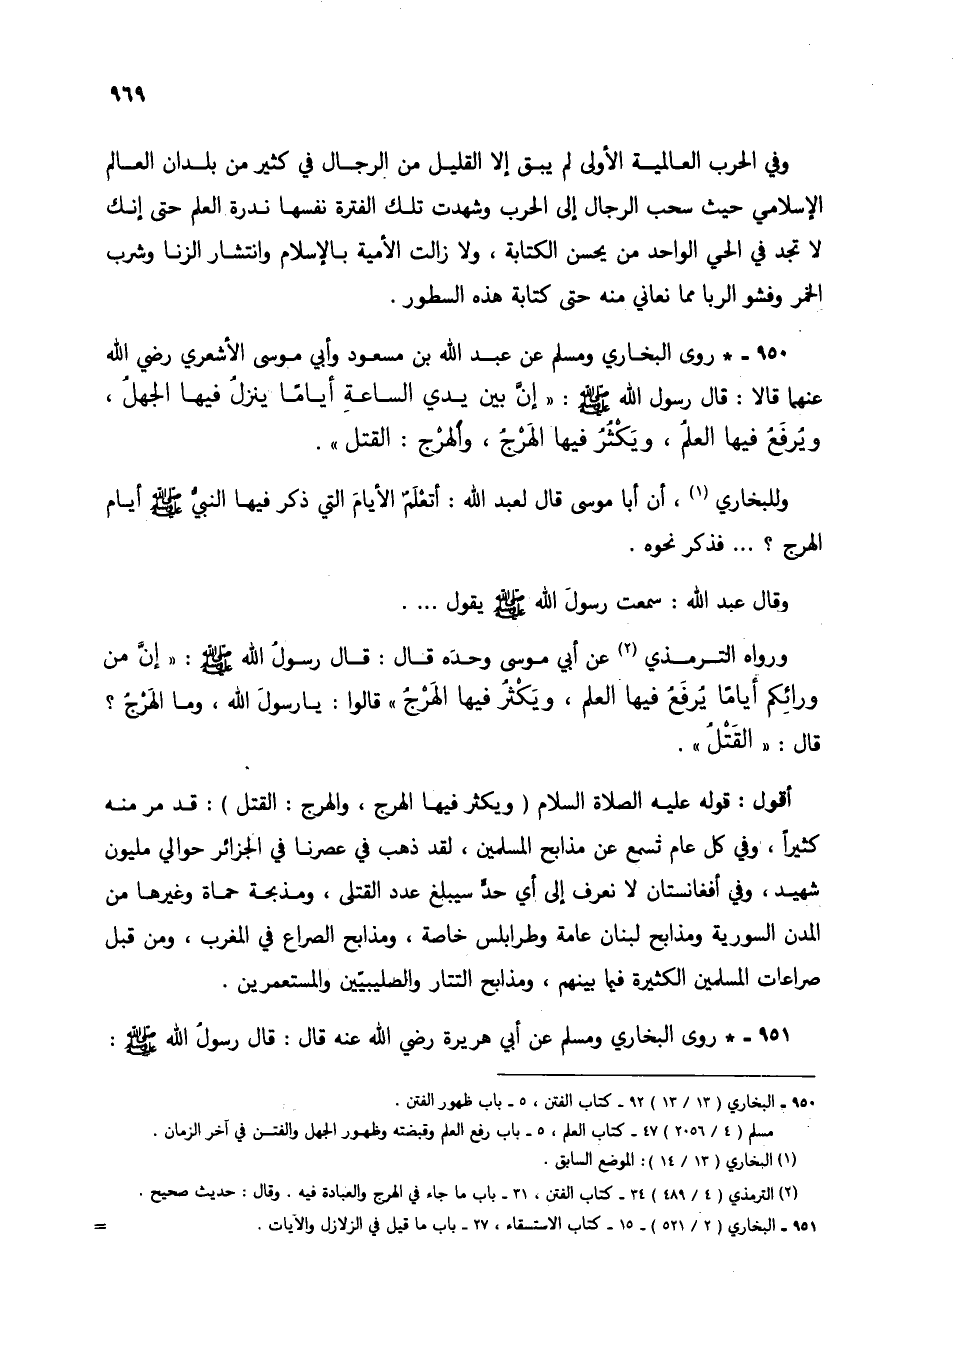 ٩٦٩
وفي الحرب العالمية الأولى لم يبق إلا القليل من الرجال في كثير من بلدان العالم
الإسلامي حيث سحب الرجال إلى الحرب وشهدت تلك الفترة نفسها ندرة العلم حتى إنك
لا تجد في الحي الواحد من يحسن الكتابة ، ولا زالت الأمية بالإسلام وانتشار الزنا وشرب
الخمر وفشو الربا مما نعاني منه حتى كتابة هذه السطور .
٩٥٠ ـ * روى البخاري ومسلم عن عبد الله بن مسعود وأبي موسى الأشعري رضي الله
عنهما قالا : قال رسول الله ﷺ : « إنَّ بين يدي الساعةِ أيامًا ينزلُ فيها الجهلُ ،
ويُرفَعُ فيها العلمُ ، ويَكْثُرُ فيها الهَرْجُ ، والهرْج : القتل » .
وللبخاري (١) ، أن أبا موسى قال لعبد الله : أتعْلَمُ الأيامَ التي ذكر فيها النبيُّ ﷺ أيام
الهرج ؟ ... فذكر نحوه .
وقال عبد الله : سمعت رسولَ الله ﷺ يقول ... .
ورواه الترمذي (٢) عن أبي موسى وحدَه قال : قال رسولُ الله ﷺ : « إنَّ من
ورائِكم أيامًا يُرفَعُ فيها العلم ، ويَكْثُرُ فيها الهَرْجُ » قالوا : يارسولَ الله ، وما الهَرْجُ ؟
قال : « القَتْلُ » .
أقول : قوله عليه الصلاة السلام ( ويكثر فيها الهرج ، والهرج : القتل ) : قد مر منه
كثيراً ، وفي كل عام نسمع عن مذابح المسلمين ، لقد ذهب في عصرنا في الجزائر حوالي مليون
شهيد ، وفي أفغانستان لا نعرف إلى أي حدٍّ سيبلغ عدد القتلى ، ومذبحة حماة وغيرها من
المدن السورية ومذابح لبنان عامة وطرابلس خاصة ، ومذابح الصراع في المغرب ، ومن قبل
صراعات المسلمين الكثيرة فيما بينهم ، ومذابح التتار والصليبيّين والمستعمرين .
٩٥١ ـ * روى البخاري ومسلم عن أبي هريرة رضي الله عنه قال : قال رسولُ الله ﷺ :
٩٥٠ ـ البخاري ( ١٣ / ١٣ ) ٩٢ ـ كتاب الفتن ، ٥ ـ باب ظهور الفتن .
مسلم ( ٤ / ٢٠٥٦ ) ٤٧ ـ كتاب العلم ، ٥ ـ باب رفع العلم وقبضته وظهور الجهل والفتن في آخر الزمان .
(١) البخاري ( ١٣ / ١٤ ) : الموضع السابق .
(٢) الترمذي ( ٤ / ٤٨٩ ) ٣٤ ـ كتاب الفتن ، ٣١ ـ باب ما جاء في الهرج والعبادة فيه . وقال : حديث صحيح .
٩٥١ ـ البخاري ( ٢ / ٥٢١ ) ـ ١٥ ـ كتاب الاستسقاء ، ٢٧ ـ باب ما قيل في الزلازل والآيات . =